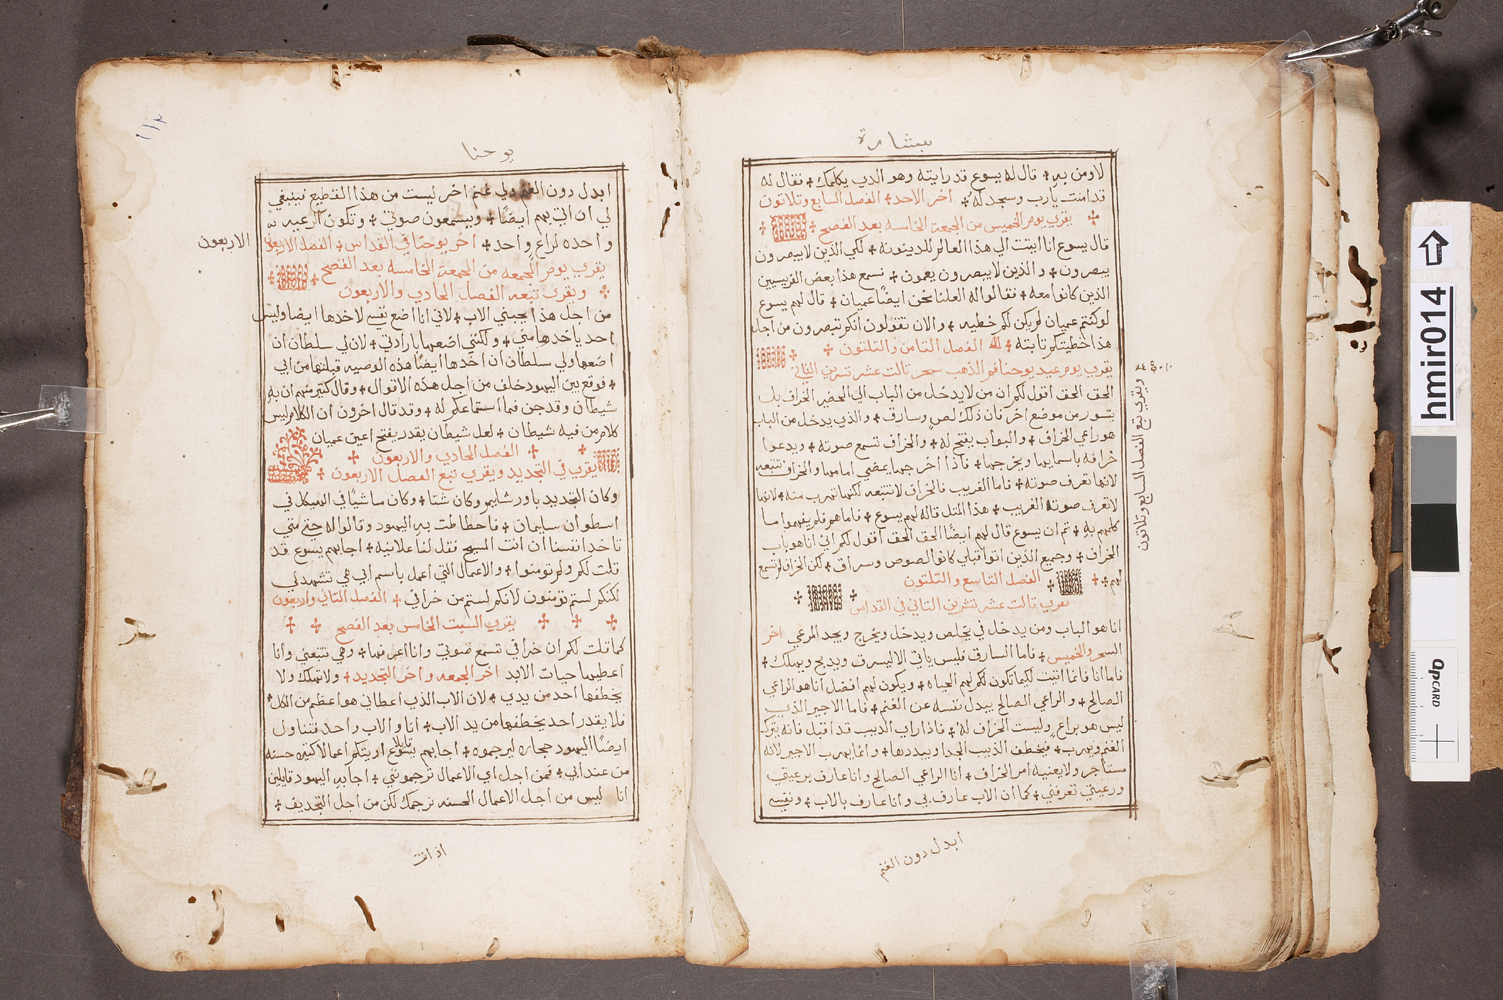 بشارة
لاومن به ٭ قال له يسوع قد رايته وهو الذي يكلمك ٭ فقال له
قد امنت يارب وسجد له ٭ اخر الاحد ٭ الفصل السابع وثلاثون
يقري يوم الخميس من الجمعة الخامسه بعد الفصح
قال يسوع انا اتيت الي هذا العالم للدينونه ٭ لكي الذين لا يبصرون
يبصرون ٭ والذين لا يبصرون يعمون ٭ فسمع هذا بعض الفريسيين
الذين كانوا معه ٭ فقالوا له العلنا نحن ايضًا عميان ٭ قال لهم يسوع
لو كنتم عميان لم يكن لكم خطيه ٭ والان تقولون انكم تبصرون من اجل
هذا خطيتكم ثابته ٭ لله الفصل الثامن والثلثون
يقري يوم عيد يوحنا فم الذهب سحر ثالت عشر تشرين الثاني
الحق الحق اقول لكم ان من لا يدخل من الباب الي الحضير الخراف بل
يتسور من موضع اخر فان ذلك لص وسارق ٭ والذي يدخل من الباب
هو راعي الخراف ٭ والبواب يفتح له ٭ والخراف تسمع صوته ٭ ويدعوا
خرافه باسمايها ويخرجها ٭ فاذا اخرجها يمضي امامها والخراف تتبعه
لانها تعرف صوته ٭ فاما الغريب فالخراف لا تتبعه لكنها تهرب منه ٭ لانها
لا تعرف صوت الغريب ٭ هذا المثل قاله لهم يسوع ٭ فاما هم فلم يفهموا ما
كلمهم به ٭ ثم ان يسوع قال لهم ايضًا الحق الحق اقول لكم اني انا هو باب
الخراف ٭ وجميع الذين اتوا قبلي كانوا لصوص وسراق ٭ لكن الخراف لم تسمع
لهم ٭ الفصل التاسع والثلثون
يقري ثالت عشر تشرين الثاني في القداس
انا هو الباب ومن يدخل في يخلص ويدخل ويخرج ويجد المرعي اخر
السحر والخميس ٭ فاما السارق فليس ياتي الا ليسرق ويدبح ويهلك ٭
فاما انا فانما اتيت لكيما تكون لكم لهم الحياه ٭ ويكون لهم افضل انا هو الراعي
الصالح ٭ والراعي الصالح يبدل نفسه عن الغنم ٭ فاما الاجير الذي
ليس هو براع وليست الخراف له ٭ فاذا راي الديب قد اقبل فانه يترك
الغنم ويهرب ٭ فيخطف الديب الجدا ويبددها ٭ وانما يهرب الاجير لانه
مستاجر ولا يعنيه امر الخراف ٭ انا الراعي الصالح وانا عارف برعيتي
ورعيتي تعرفني ٭ كما ان الاب عارف بي وانا عارف بالاب ٭ ونفسي
ابدل دون الغنم
ويقري تبع الفصل السابع وثلاثون
يوحنا
ابدل دون الغنم ولي غنم اخر ليست من هذا القطيع فينبغي
لي ان اتي بهم ايضًا ٭ ويسمعون صوتي ٭ وتكون الرعيه
واحده لراع واحد ٭ اخر يوحنا في القداس ٭ الفصل الاربعون
الاربعون
يقري يوم الجمعه من الجمعة الخامسه بعد الفصح
ويقري تبعه الفصل الحادي والاربعون
من اجل هذا يحبني الاب ٭ لاني انا اضع نفسي لاخدها ايضا وليس
احد ياخدها مني ٭ ولكنني اضعها بارادتي ٭ لان لي سلطان ان
اضعها ولي سلطان ان اخدها ايضا هذه الوصيه قبلتها من ابي
٭ فوقع بين اليهود خلف من اجل هذه الاقوال ٭ وقال كثير منهم ان به
شيطان وقد جن فما استماعكم له ٭ وقد قال اخرون ان الكلام ليس
كلام من فيه شيطان ٭ لعل شيطان يقدر يفتح اعين عميان
الفصل الحادي والاربعون
يقري في التجديد ويقري تبع الفصل الاربعون
وكان التجديد باورشليم وكان شتا ٭ وكان ماشيًا في الهيكل في
اسطوان سليمان ٭ فاحطاطت به اليهود وقالوا له حتي متي
تاخد انفسنا ان انت المسيح فقل لنا علانيه ٭ اجابهم يسوع قد
قلت لكم ولم تومنوا ٭ والاعمال التي اعمل باسم ابي هي تشهد لي
لكنكم لستم تومنون لانكم لستم من خرافي ٭ الفصل الثاني واربعون
يقري السبت الخامس بعد الفصح
كما قلت لكم ان خرافي تسمع صوتي وانا اعرفها ٭ وهي تتبعني وانا
اعطيها حيات الابد اخر الجمعه واخر التجديد ٭ ولا تهلك ولا
يخطفها احد من يدي ٭ لان الاب الذي اعطاني هو اعظم من الكل
فلا يقدر احد يخطفها من يد الاب ٭ انا والاب واحد فتناول
ايضًا اليهود حجاره ليرجموه ٭ اجابهم يسوع قايلا اريتكم اعمالا كثيره حسنه
من عند ابي ٭ فمن اجل اي الاعمال ترجموني ٭ اجابه اليهود قايلين
انا ليس من اجل الاعمال الحسنه نرجمك لكن من اجل التجديف ٭
اذ انت
hmir014
QPCARD